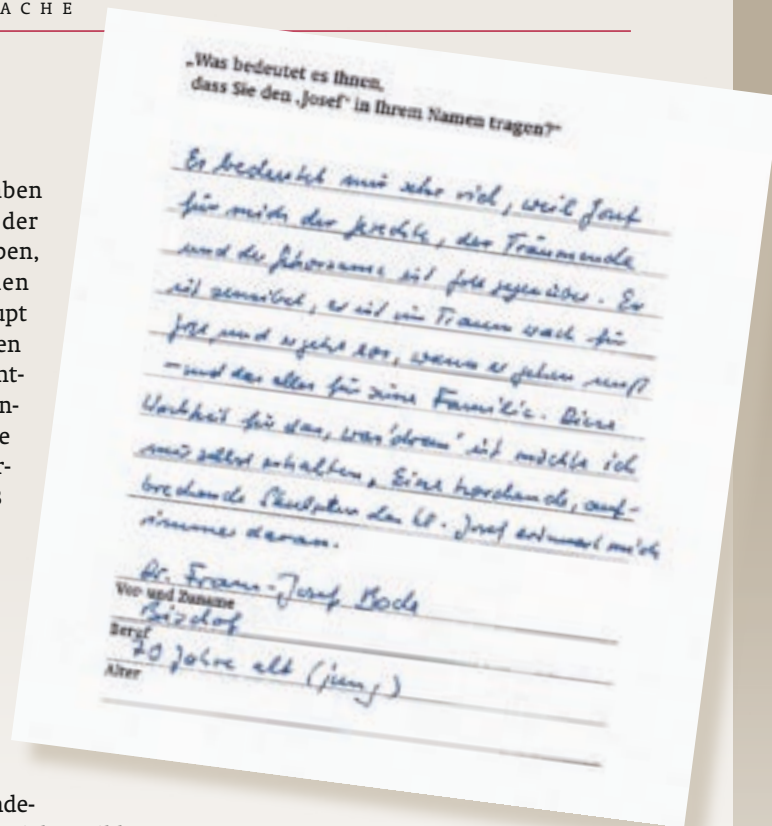 ACHE
„Was bedeutet es Ihnen,
dass Sie den ‚Josef‘ in Ihrem Namen tragen?“
Es bedeutet mir sehr viel, weil Josef
für mich der Gerechte, der Träumende
und der Gehorsame ist Gott gegenüber. Er
ist sensibel, er ist im Traum wach für
Gott und er geht los, wann er gehen muß
– und das alles für seine Familie. Diese
Wachheit für das, was ‚dran‘ ist möchte ich
mir selbst erhalten. Eine horchende, auf-
brechende Skulptur des hl. Josef erinnert mich
immer daran.
Dr. Franz-Josef Bode
Vor- und Zuname
Bischof
Beruf
70 Jahre alt (jung)
Alter
ben
der
ben,
en
upt
en
nt-
n-
e
r-
s
nde-